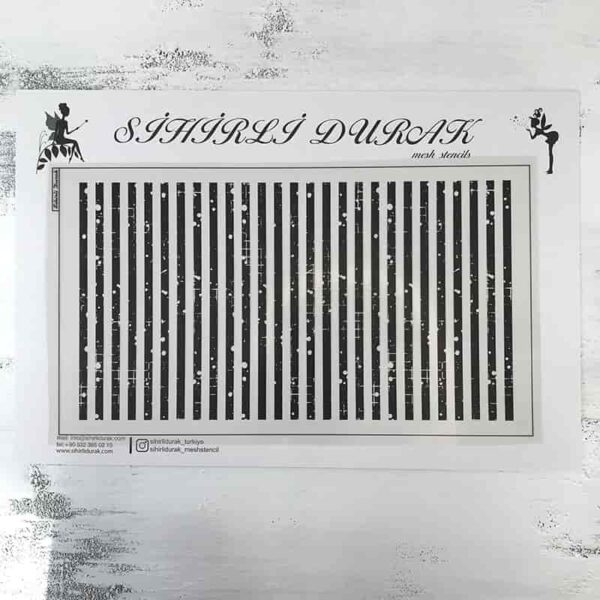 SİHİRLİ DURAK
mesh stencils
Mail: info@sihirlidurak.com
tel:+90 532 365 02 15
www.sihirlidurak.com
sihirlidurak_turkiye
sihirlidurak_meshstencil